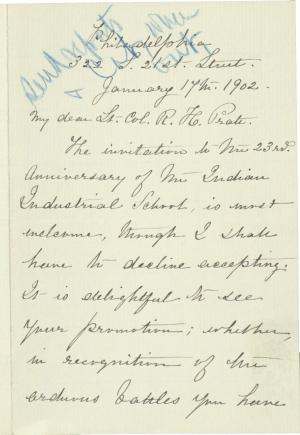 Philadelphia
322 S. 21st. Street.
January 17th. 1902.
My dear Lt. Col. R. H. Pratt.
The invitation to the 23rd.
Anniversary of the Indian
Industrial School, is most
welcome, though I shall
have to decline accepting.
It is delightful to see
your promotion; whether,
in recognition of the
arduous battles you have